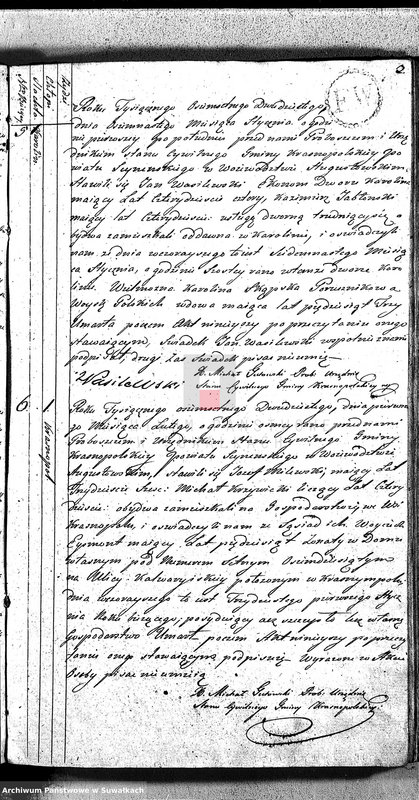 2
FW
Roku Tysiącznego Osiemsetnego Dwudziestego,
dnia Osiemnastego Miesiąca Stycznia o godzi
nie pierwszey po południu przed nami Proboszczem i Urzę
dnikiem Stanu Cywilnego Gminy Krasnopolskiey Po
wiatu Seyneńskiego w Woiewództwie Augustowskim
Stawili się Jan Wasilewski Ekonom Dworu Karolin
maiący Lat Czterydzieści cztery, Kazimierz Jabłoński
maiący lat Czterydzieści
obydwa zamieszkali oddawna w Karolinie, i oświadczyli
nam że dnia wczorayszego to iest Siedemnastego Miesią
ca Stycznia, o godzinie Szostey rano w tamże dworze Karo
linie Wielmożna Karolina Porucznikowa
Woysk Polskich wdowa maiąca lat pięćdziesiąt Trzy
Umarła poczem Akt ninieyszy po przeczytaniu onego
stawaiącym, świadek Jan Wasilewski wspólnie z nami
podpisał, drugi zaś świadek pisać nieumie
Wasilewski
X. Michał Prob. Urzędnik
Stanu Cywilnego Gminy Krasnopolskiey
6
1
Krasnopol
Roku Tysiącznego osiemsetnego Dwudziestego, dnia pierwsze
go Miesiąca Lutego, o godzinie osmey rano przed nami
Proboszczem i Urzędnikiem Stanu Cywilnego Gminy
Krasnopolskiey Powiatu Seyneńskiego w Woiewództwie
Augustowskim, stawili się Jozef Milewski, maiący Lat
Trzydzieści Sześć: Michał Krzywicki liczący Lat Cztery
dzieści: obydwa zamieszkali na Gospodarstwie we Wsi
Krasnopolu, i oświadczyli nam że Sąsiad ich Woyciech
Eysmont maiący Lat pięćdziesiąt w Domu
własnym pod Numerem Setnym Osiemdziesiątym
na Ulicy Kalwaryiskiey położonym w Krasnympolu,
dnia wczorayszego to iest Trzydziestego pierwszego Stycz
nia Roku bieżącego;
Gospodarstwo Umarł poczem Akt ninieyszy po przeczy
taniu onego stawaiącym podpisany Wyrażone w Akcie
Osoby pisać nieumieią
X. Michał Prob. Urzędnik
Stanu Cywilnego Gminy Krasnopolskiey
Archiwum Państwowe w Suwałkach